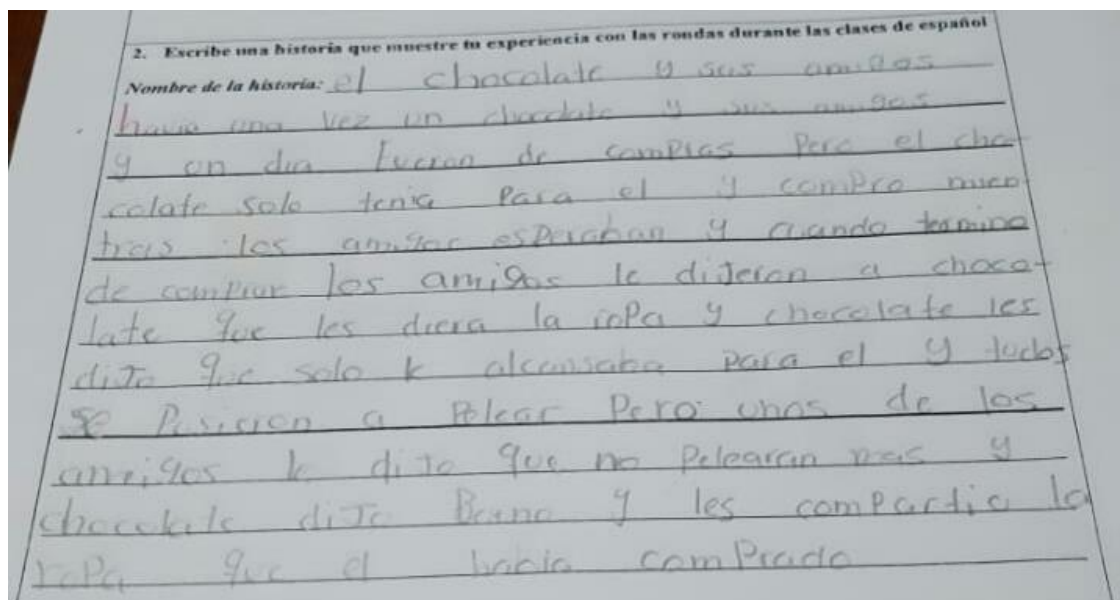 2. Escribe una historia que muestre tu experiencia con las rondas durante las clases de español
Nombre de la historia: el chocolate y sus amigos
havia una vez un chocolate y sus amigos
y un dia fueron de complas Pero el cho-
colate solo tenia Para el y comPro mien
tras los amigos esperaban y cuando termino
de comprar los amigos le diJeron a choco-
late que les diera la roPa y chocolate les
diJo que solo le alcansaba para el y todos
se Pusieron a Pelear Pero unos de los
amigos le diJo que no Pelearan mas y
chocolate diJo Bueno y les comPartio la
roPa que el habia comPrado